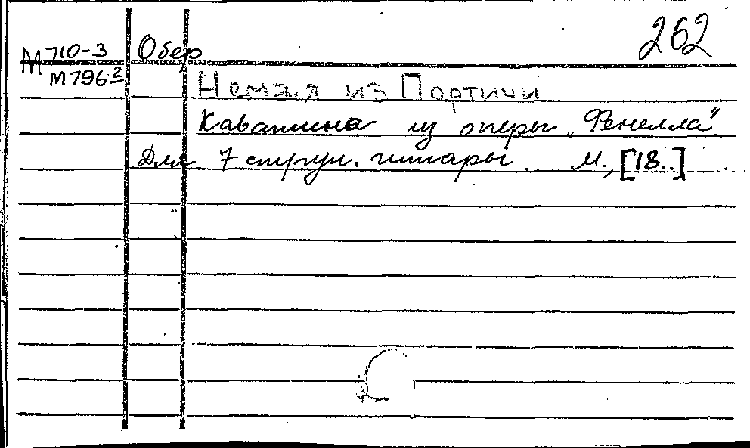 262
М 710-3 Обер
М 796-2
Немая из Портичи
Каватина из оперы „Фенелла"
Для 7 струн. гитары. М., [18..]